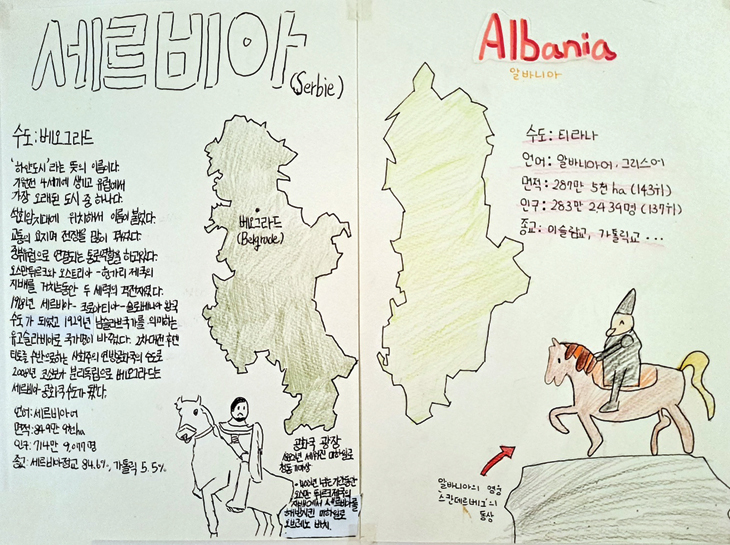 세르비아
(Serbie)
수도 : 베오그라드
'하얀도시'라는 뜻의 이름이다.
기원전 4세기에 생기고 유럽에서
가장 오래된 도시 중 하나다.
석회암지대에 위치해서 이름이 붙었다.
교통의 요지며 전쟁을 많이 겪었다.
오스만튀르크와 오스트리아-헝가리 제국의
지배를 거치는동안 두 세력의 격전지였다.
1918년 세르비아-크로아티아-슬로베니아 왕국
수도가 되었고 1929년 남슬라브국가를 의미하는
유고슬라비아로 국가명이 바뀌었다. 2차대전 후엔
티토를 수반으로하는 사회주의 연방공화국 수도로
2008년 코소보가 분리독립으로 베오그라드는
세르비아 공화국수도가 됐다.
언어: 세르비아어
면적: 849만 9천ha
인구: 714만 9,077명
종교: 세르비아정교 84.6%, 가톨릭 5.5%
베오그라드
(Belgrade)
공화국 광장
Albania
알바니아
수도: 티라나
언어: 알바니아어, 그리스어
면적: 287만 5천 ha (143위)
인구: 283만 2439명 (137위)
종교: 이슬람교, 가톨릭교 ...
알바니아의 영웅
'스칸데르베그'의
동상